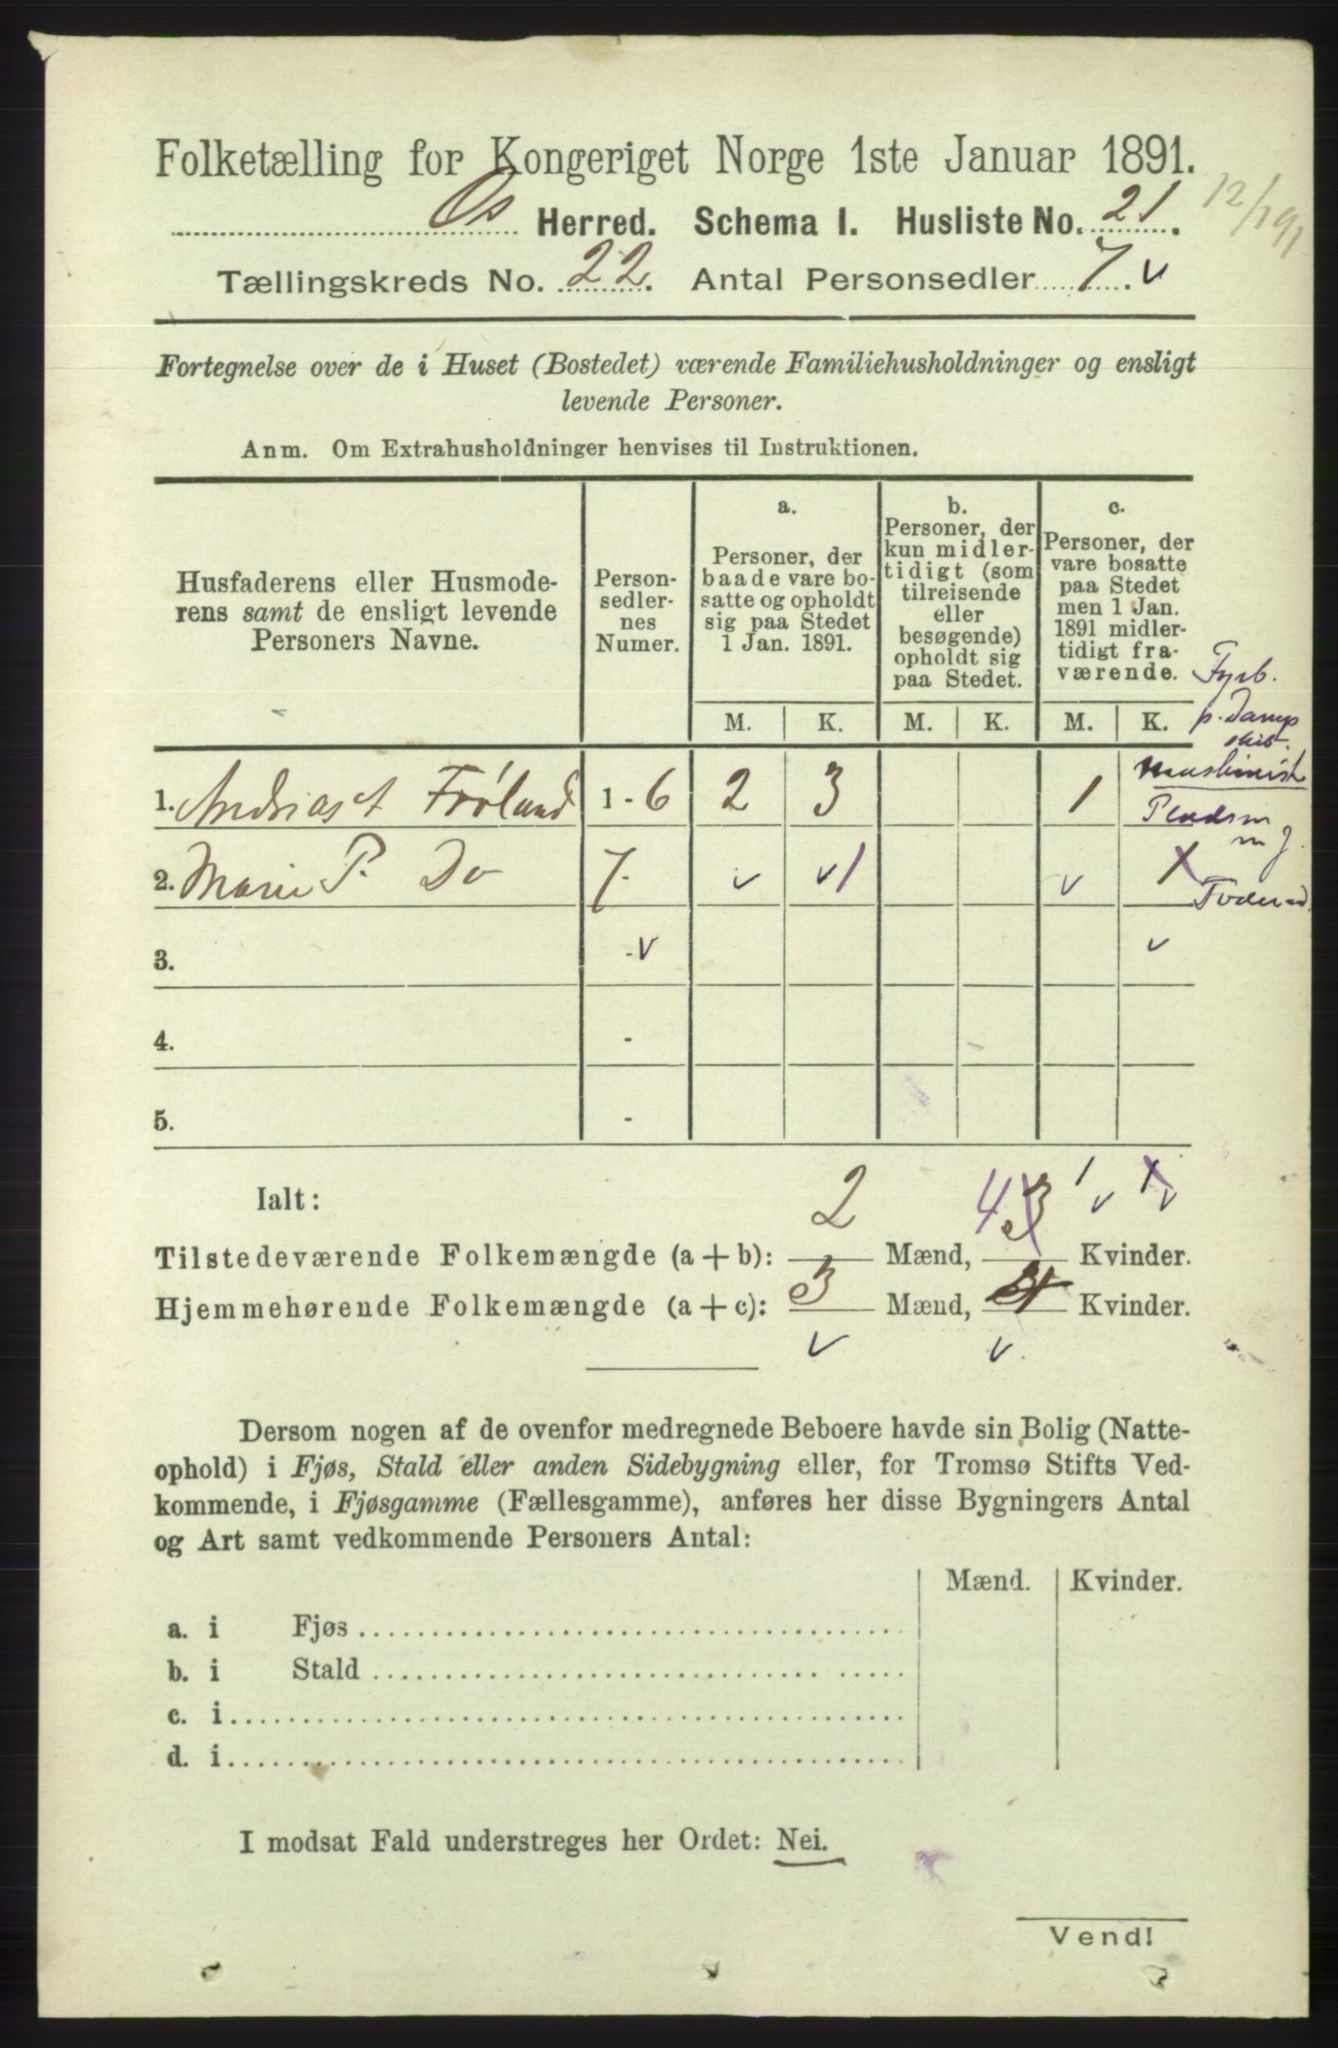 Folketælling for Kongeriget Norge 1ste Januar 1891.
Os Herred. Schema I. Husliste No. 21.
Tællingskreds No. 22. Antal Personsedler 7. v
Fortegnelse over de i Huset (Bostedet) værende Familiehusholdninger og ensligt
levende Personer.
Anm. Om Extrahusholdninger henvises til Instruktionen.
Husfaderens eller Husmode-
rens samt de ensligt levende
Personers Navne.
Person-
sedler-
nes
Numer.
a.
Personer, der
baade vare bo-
satte og opholdt
sig paa Stedet
1 Jan. 1891.
b.
Personer, der
kun midler-
tidigt (som
tilreisende
eller
besøgende)
opholdt sig
paa Stedet.
c.
Personer, der
vare bosatte
paa Stedet
men 1 Jan.
1891 midler-
tidigt fra-
værende.
Fyrb.
p. Damp
skib.
M. K. M. K. M. K.
1. Andrias A Frøland 1 - 6 2 3 1
2. Marie P. Do 7 - v v 1 v
Foderaad
3. - v v
4. -
5. -
Ialt:
Tilstedeværende Folkemængde (a + b): 2 Mænd, 4 3 Kvinder.
Hjemmehørende Folkemængde (a + c): 3 Mænd, 4 Kvinder.
v v.
Dersom nogen af de ovenfor medregnede Beboere havde sin Bolig (Natte-
ophold) i Fjøs, Stald eller anden Sidebygning eller, for Tromsø Stifts Ved-
kommende, i Fjøsgamme (Fællesgamme), anføres her disse Bygningers Antal
og Art samt vedkommende Personers Antal:
Mænd. Kvinder.
a. i Fjøs
b. i Stald
c. i
d. i
I modsat Fald understreges her Ordet: Nei.
Vend!